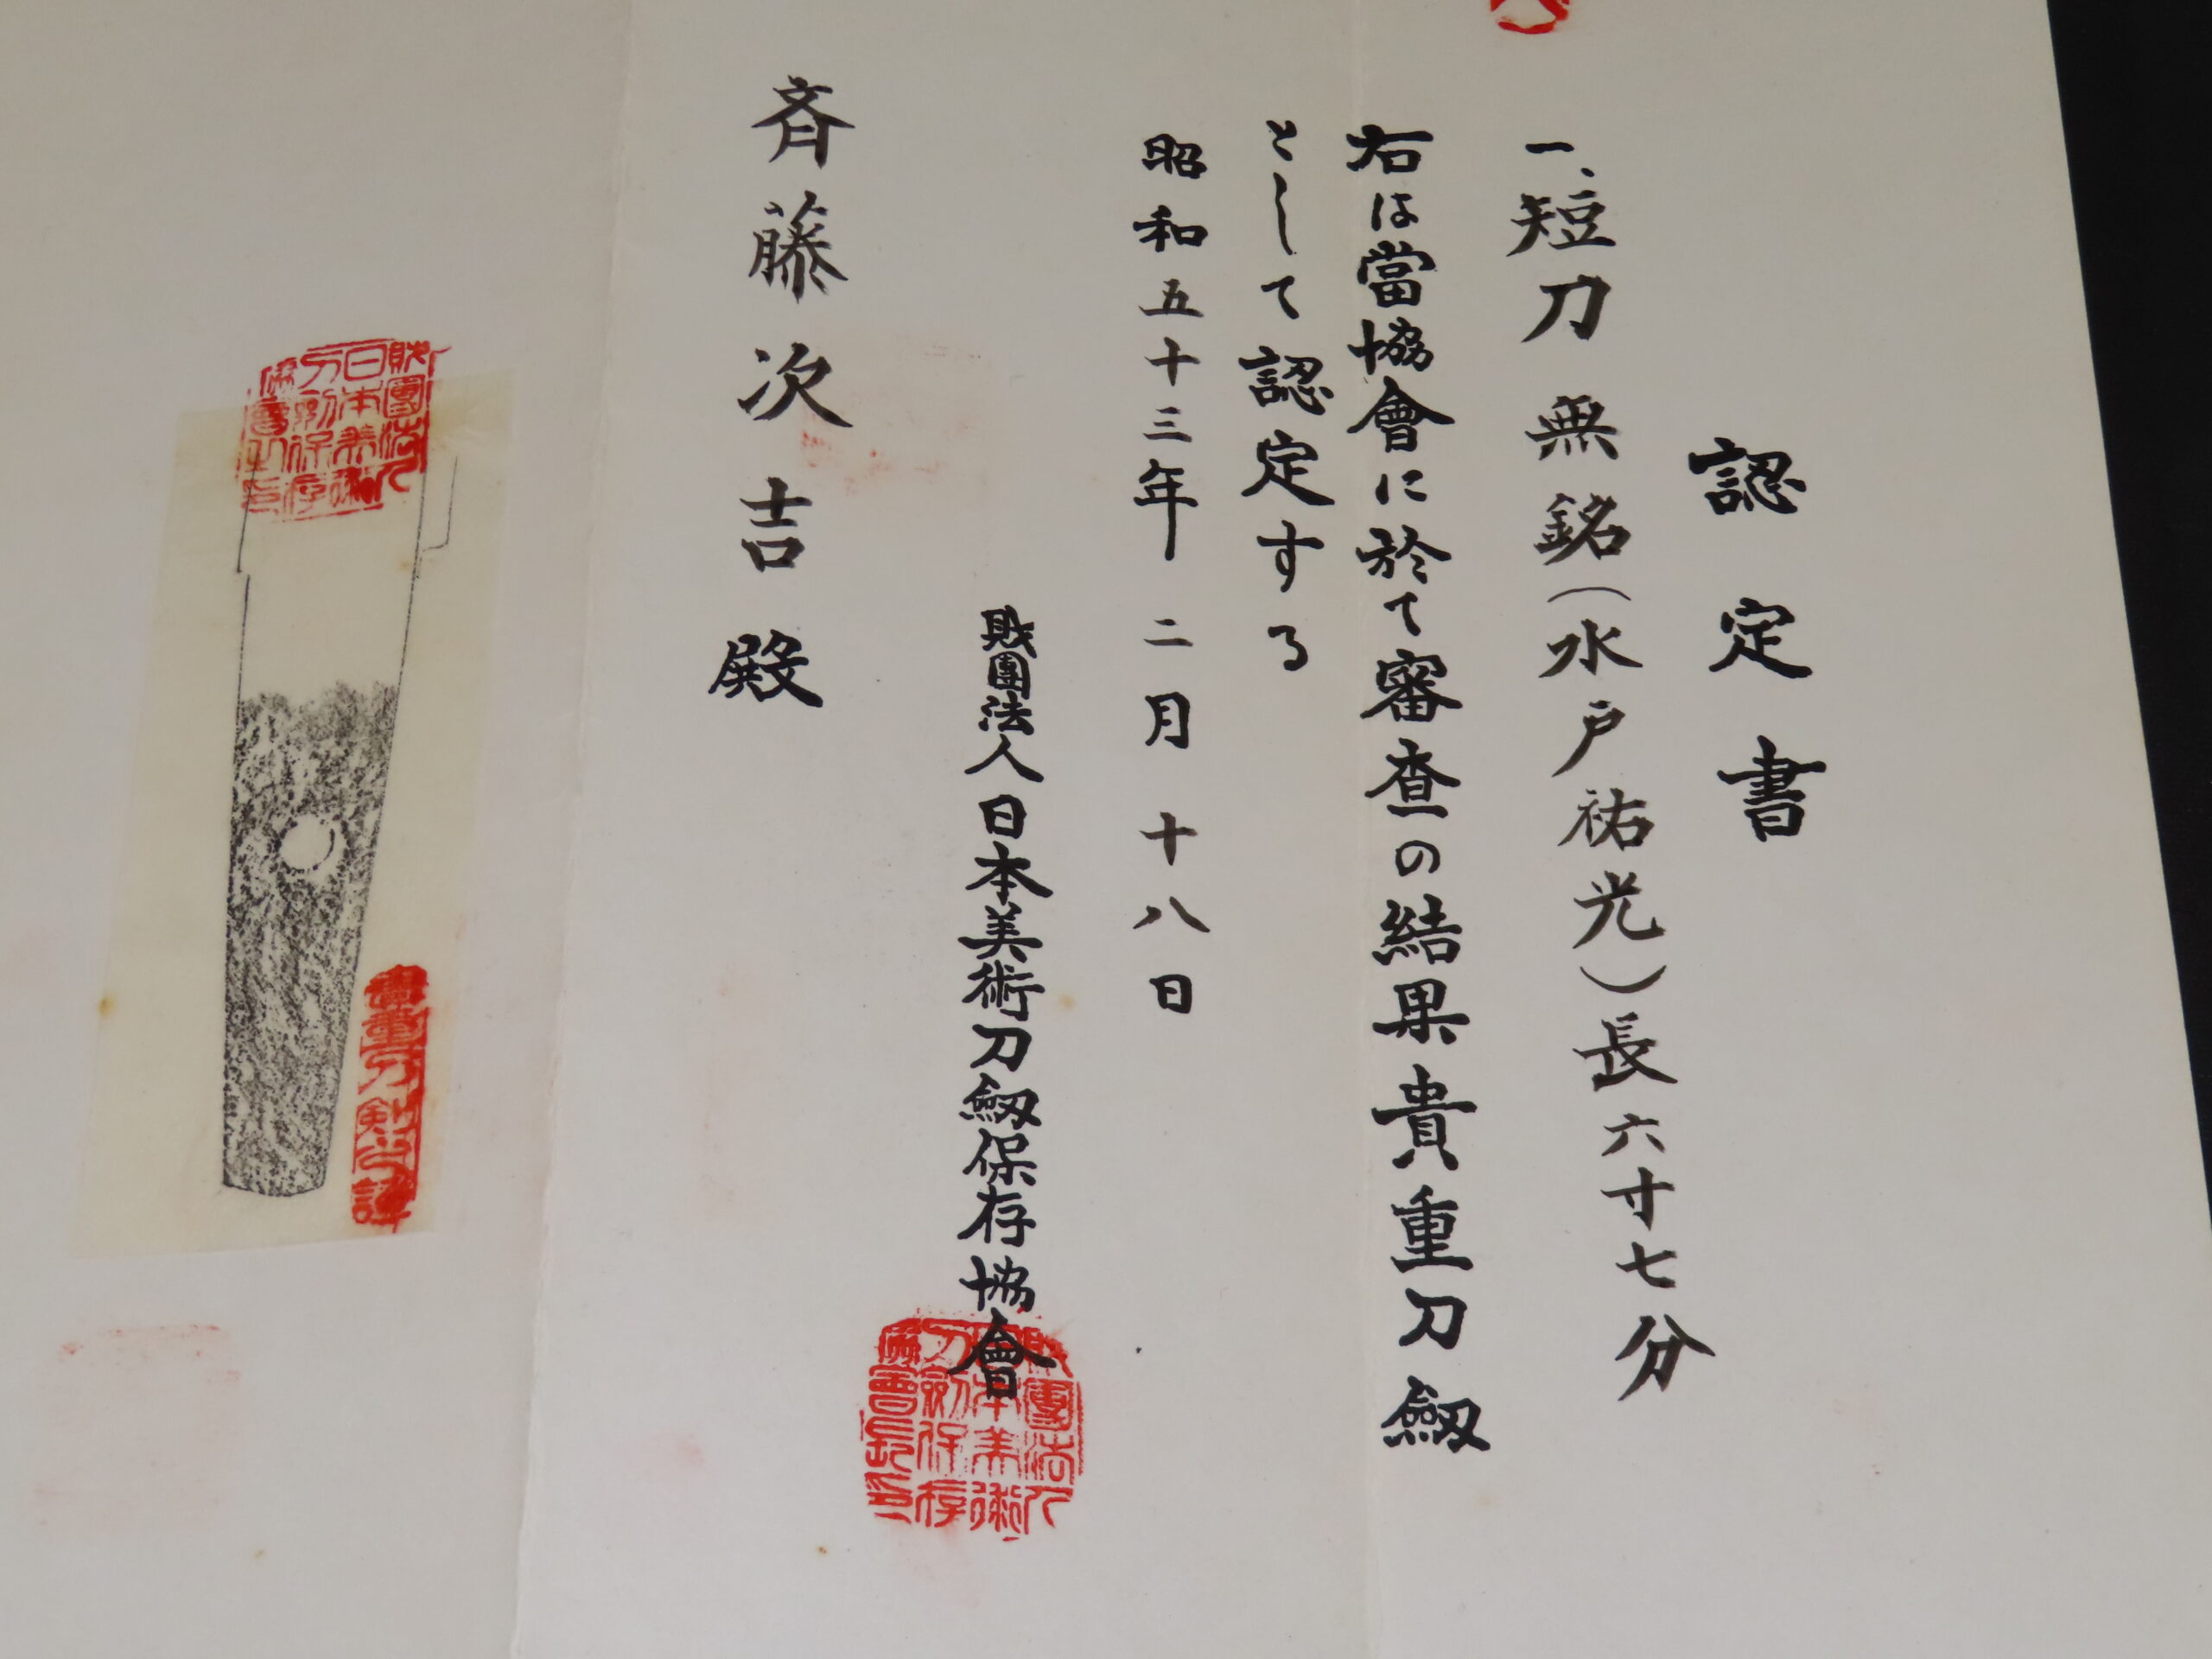 認定書
一、短刀 無銘(水戸祐光)長六寸七分
右は當協會に於て審査の結果貴重刀劔
として認定する
昭和五十三年二月十八日
財團法人日本美術刀劔保存協會
財團法人日本美術刀剣保存協會長印
斉藤次吉殿
財團法人日本美術刀剣保存協會長印
貴重刀剣之證